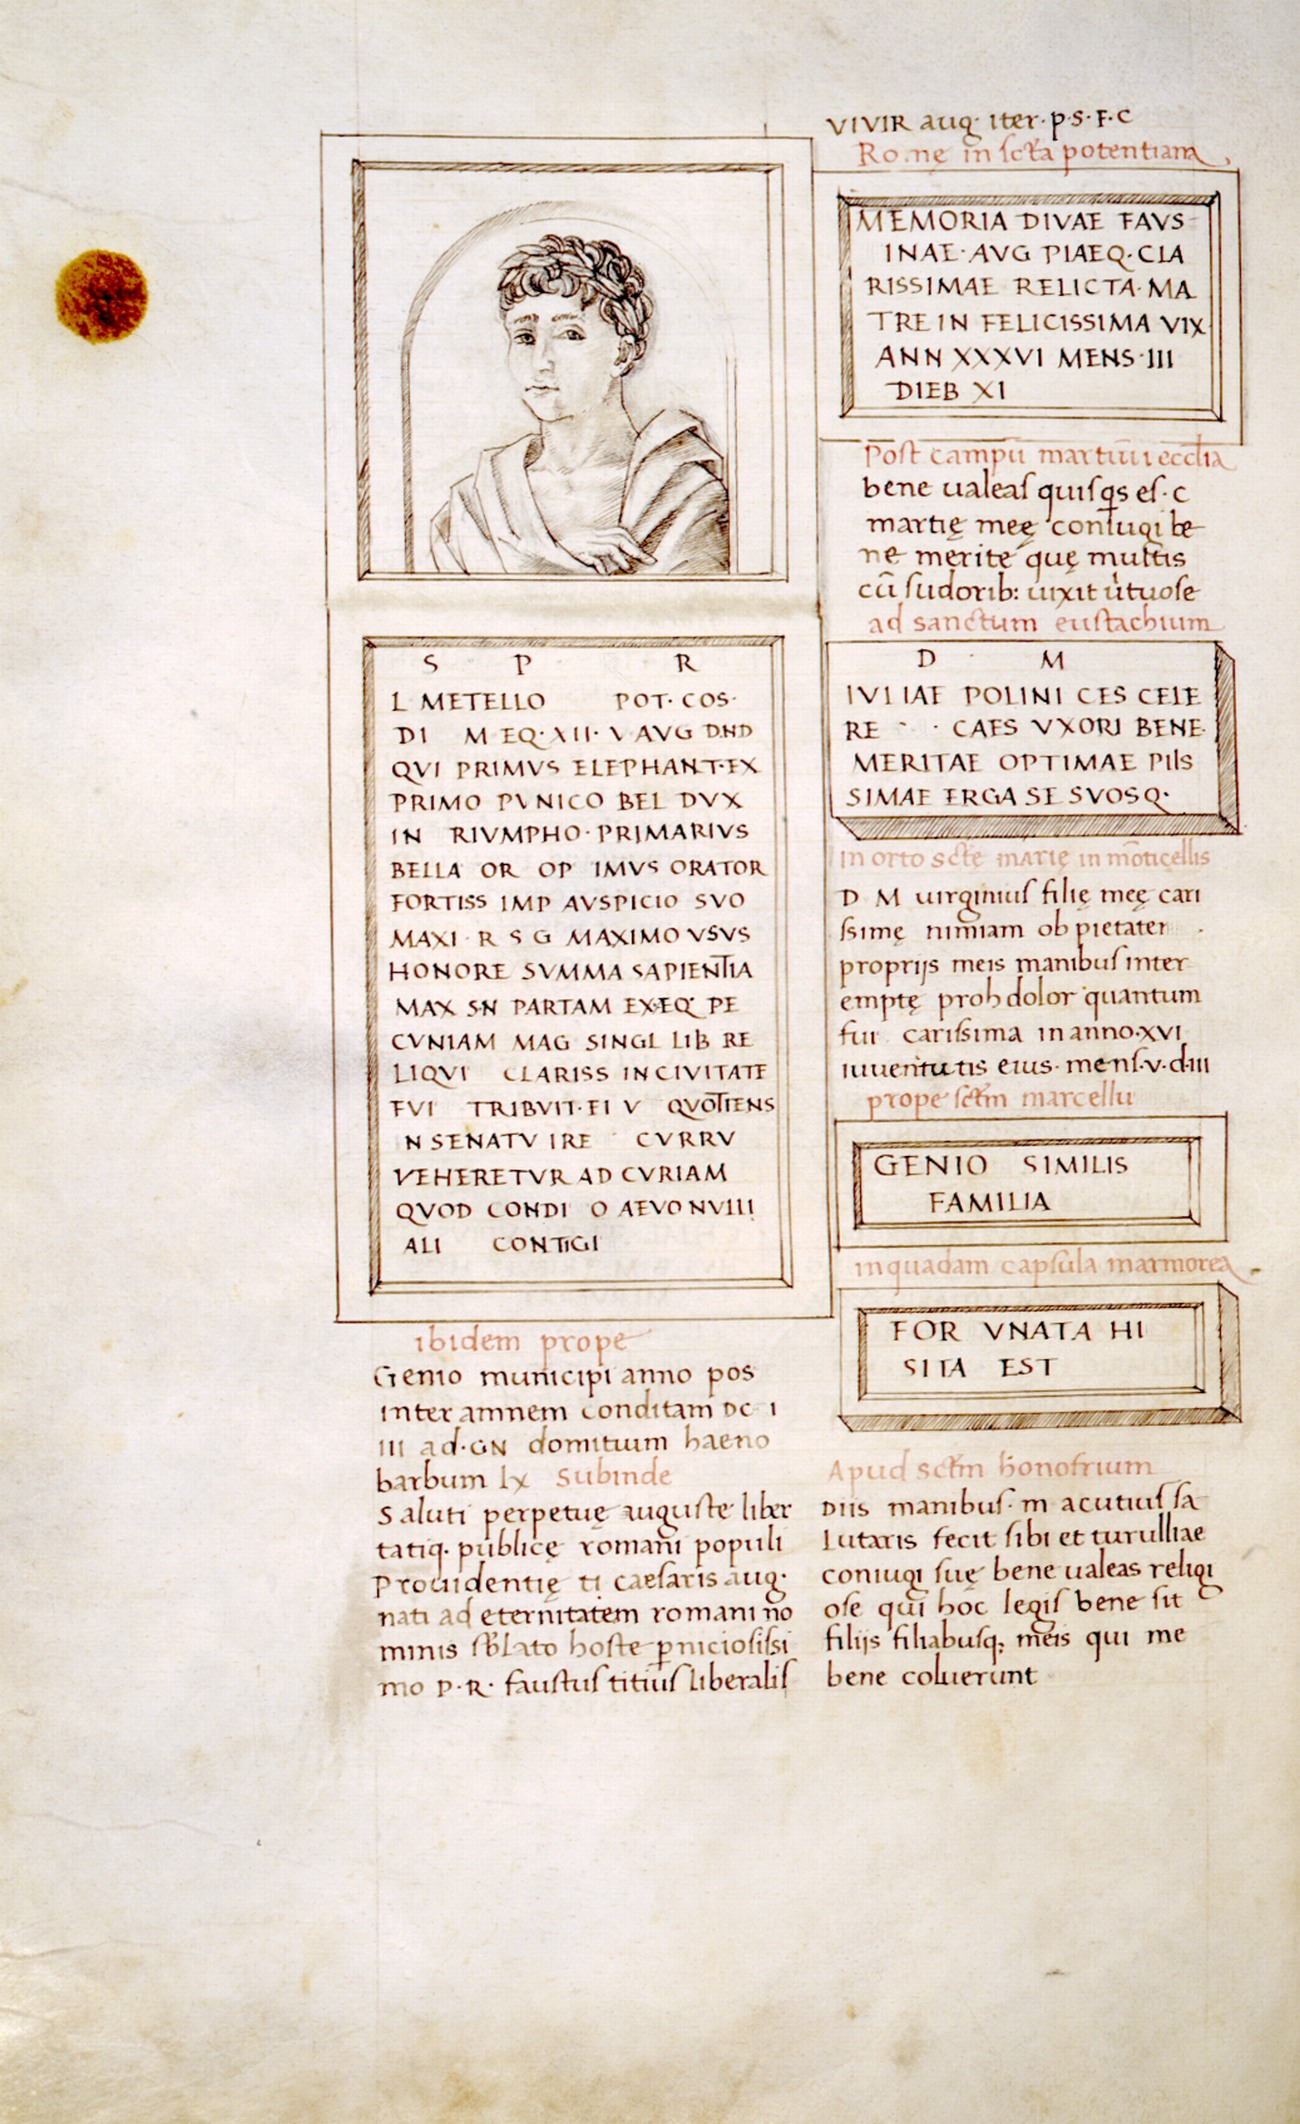 S P R
L METELLO POT· COS·
DI M EQ· XII· V AVG D.ND
QVI PRIMVS ELEPHANT·EX
PRIMO PVNICO BEL DVX
IN RIVMPHO· PRIMARIVS
BELLA OR OP IMVS ORATOR
FORTISS IMP AVSPICIO SVO
MAXI· R S G MAXIMO VSVS
HONORE SVMMA SAPIENTIA
MAX S·N PARTAM EX·EQ· PE
CVNIAM MAG SINGL LIB RE
LIQVI CLARISS IN CIVITATE
FVI TRIBVIT·EI V QVOTIENS
N SENATV IRE CVRRV
VEHERETVR AD CVRIAM
QVOD CONDI O AEVO NVIII
ALI CONTIGI
ibidem prope
Genio municipi anno pos
inter amnem conditam DC I
III ad·GN domitium haeno
barbum lx Subinde
Saluti perpetuę auguste liber
tatiq· publicę romani populi
Prouidentię ti caesaris aug·
nati ad eternitatem romani no
minis sblato hoste p̱niciosissi
mo P·R· faustus titius liberalis
VIVIR aug· iter· p·S·F·C
Romę in scta potentiana
MEMORIA DIVAE FAVS
INAE· AVG PIAEQ·CLA
RISSIMAE RELICTA·MA
TRE IN FELICISSIMA VIX
ANN XXXVI MENS·III
DIEB XI
Post campū martiū i ecclia
bene ualeas quisqs es· c
martię meę coniugi be
ne merite quę multis
cū sudorib: uixit utuose
ad sanctum eustachium
D M
IVLIAE POLINI CES CELE
RE · CAES VXORI BENE·
MERITAE OPTIMAE PIIS
SIMAE ERGA SE SVOSQ·
in orto scte marie in mōticellis
D M uirginius filię meę cari
ssimę nimiam ob pietatem
proprijs meis manibus inter
emptę proh dolor quantum
fui carissima in anno·XVI
iuuentutis eius· mens·v·d·iii
prope sctm marcellu
GENIO SIMILIS
FAMILIA
in quadam capsula marmorea
FOR VNATA HI
SITA EST
Apud sctm honofrium
DIIS manibus· m acutius sa
Lutaris fecit sibi et turulliae
coniugi suę bene ualeas religi
ose qui hoc legis bene sit
filijs filiabusq; meis qui me
bene coluerunt